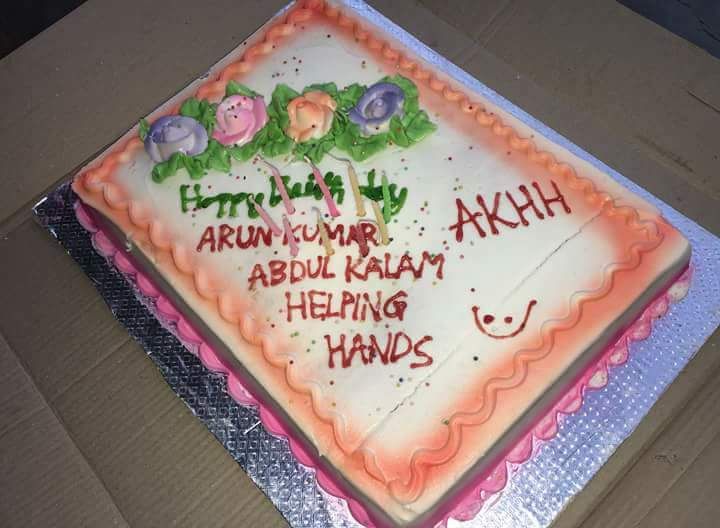 Happy Birth day
ARUN KUMAR
ABDUL KALAM
HELPING
HANDS
AKHH